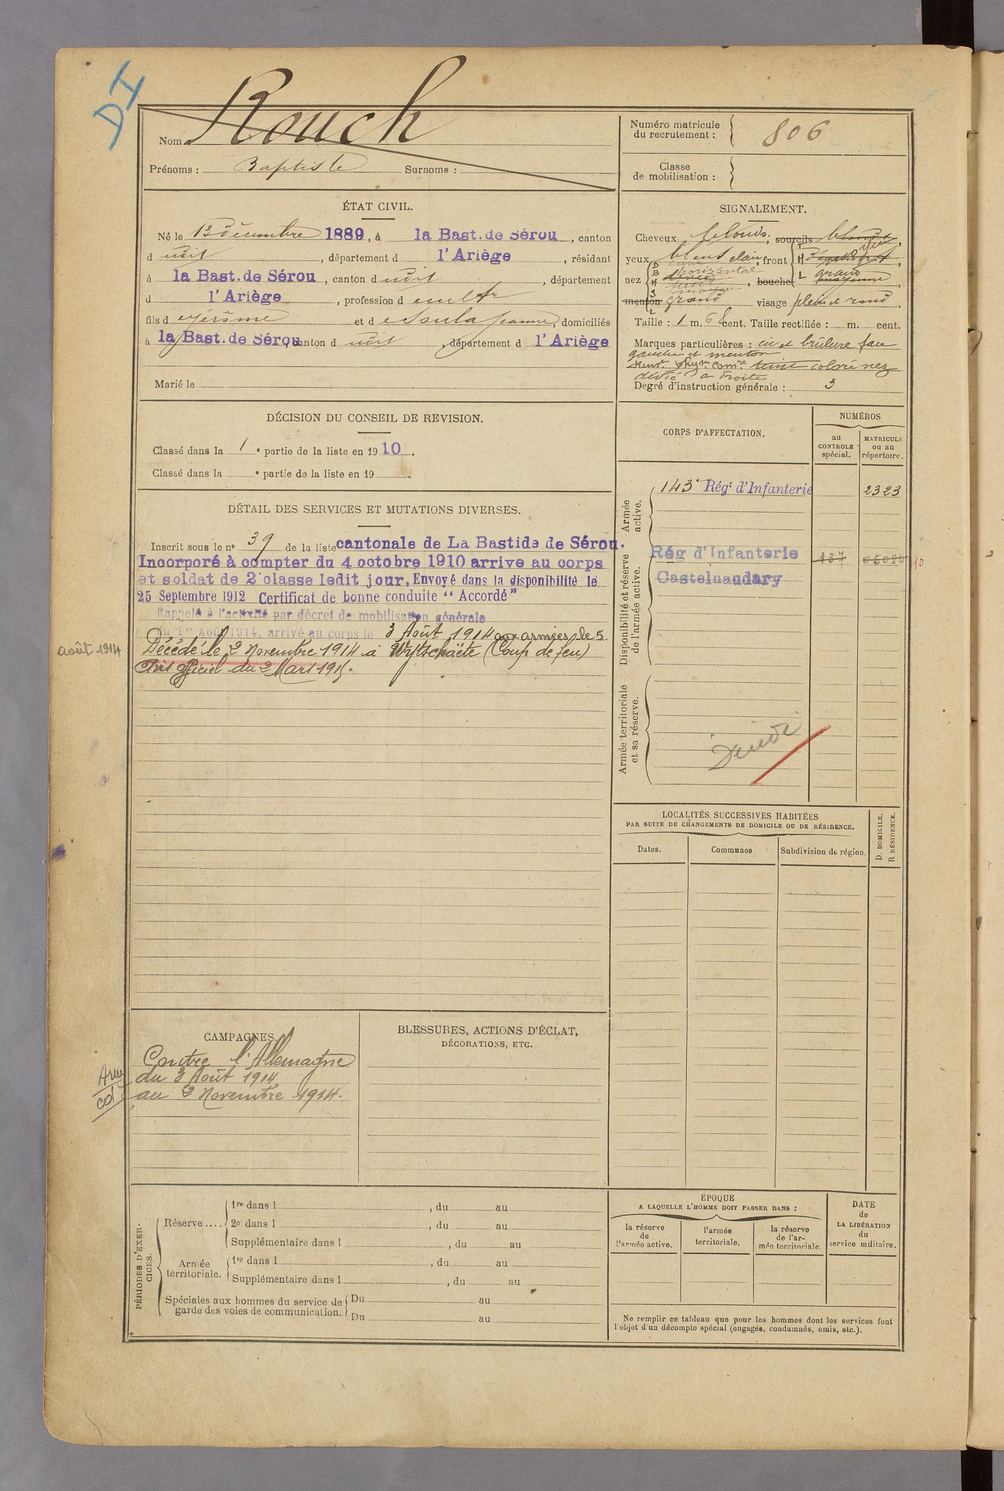 DI
Nom Rouch
Prénoms : Baptiste Surnoms :
Numéro matricule du recrutement : 806
Classe de mobilisation :
ÉTAT CIVIL.
Né le 13 décembre 1889, à la Bast. de Sérou, canton
d udit, département d l'Ariège, résidant
à la Bast. de Sérou, canton d udit, département
d l'Ariège, profession d cultr
fils d e Jérôme et d e Soula Jeanne, domiciliés
à la Bast. de Sérou, canton d udit, département d l'Ariège
Marié le
SIGNALEMENT.
Cheveux blonds, sourcils blonds
yeux bleus clair, front
nez, bouche
menton grand visage plein et rond
Taille : 1 m. 6 cent. Taille rectifiée : m. cent.
Marques particulières : cic et brûlure face
gauche et menton
teint coloré nez
dévié à droite
Degré d'instruction générale : 3
DÉCISION DU CONSEIL DE REVISION.
Classé dans la 1 e partie de la liste en 1910.
Classé dans la e partie de la liste en 19 .
DÉTAIL DES SERVICES ET MUTATIONS DIVERSES.
Inscrit sous le n° 39 de la liste cantonale de La Bastide de Sérou.
Incorporé à compter du 4 octobre 1910 arrive au corps
et soldat de 2e classe ledit jour, Envoyé dans la disponibilité le
25 Septembre 1912 Certificat de bonne conduite "Accordé"
Rappelé à l'activité par décret de mobilisation générale
du 1er Août 1914, arrivé au corps le 3 Août 1914 aux armées le 5
août 1914
Décédé le 2 Novembre 1914 à Wytschaëte (Coup de feu)
Avis officiel du 2 Mars 1915.
CORPS D'AFFECTATION.
NUMÉROS
au CONTROLE spécial.
MATRICULE ou au répertoire.
Armée active.
143e Régt d'Infanterie 2323
Disponibilité et réserve de l'armée active.
Rég d'Infanterie
Castelnaudary
Armée territoriale et sa réserve.
LOCALITÉS SUCCESSIVES HABITÉES
PAR SUITE DE CHANGEMENTS DE DOMICILE OU DE RÉSIDENCE.
Dates.
Communes
Subdivision de région.
D. DOMICILE.
R RÉSIDENCE.
CAMPAGNES.
Contre l'Allemagne
du 3 Août 1914
au 2 Novembre 1914.
BLESSURES, ACTIONS D'ÉCLAT,
DÉCORATIONS, ETC.
PÉRIODES D'EXERCICES.
Réserve....
1re dans l , du au
2e dans l , du au
Supplémentaire dans l , du au
Armée territoriale.
1re dans l , du au
Supplémentaire dans l , du au
Spéciales aux hommes du service de garde des voies de communication.
Du au
Du au
ÉPOQUE
A LAQUELLE L'HOMME DOIT PASSER DANS :
la réserve de l'armée active.
l'armée territoriale.
la réserve de l'armée territoriale.
DATE de LA LIBÉRATION du service militaire.
Ne remplir ce tableau que pour les hommes dont les services font
l'objet d'un décompte spécial (engagés, condamnés, omis, etc.).